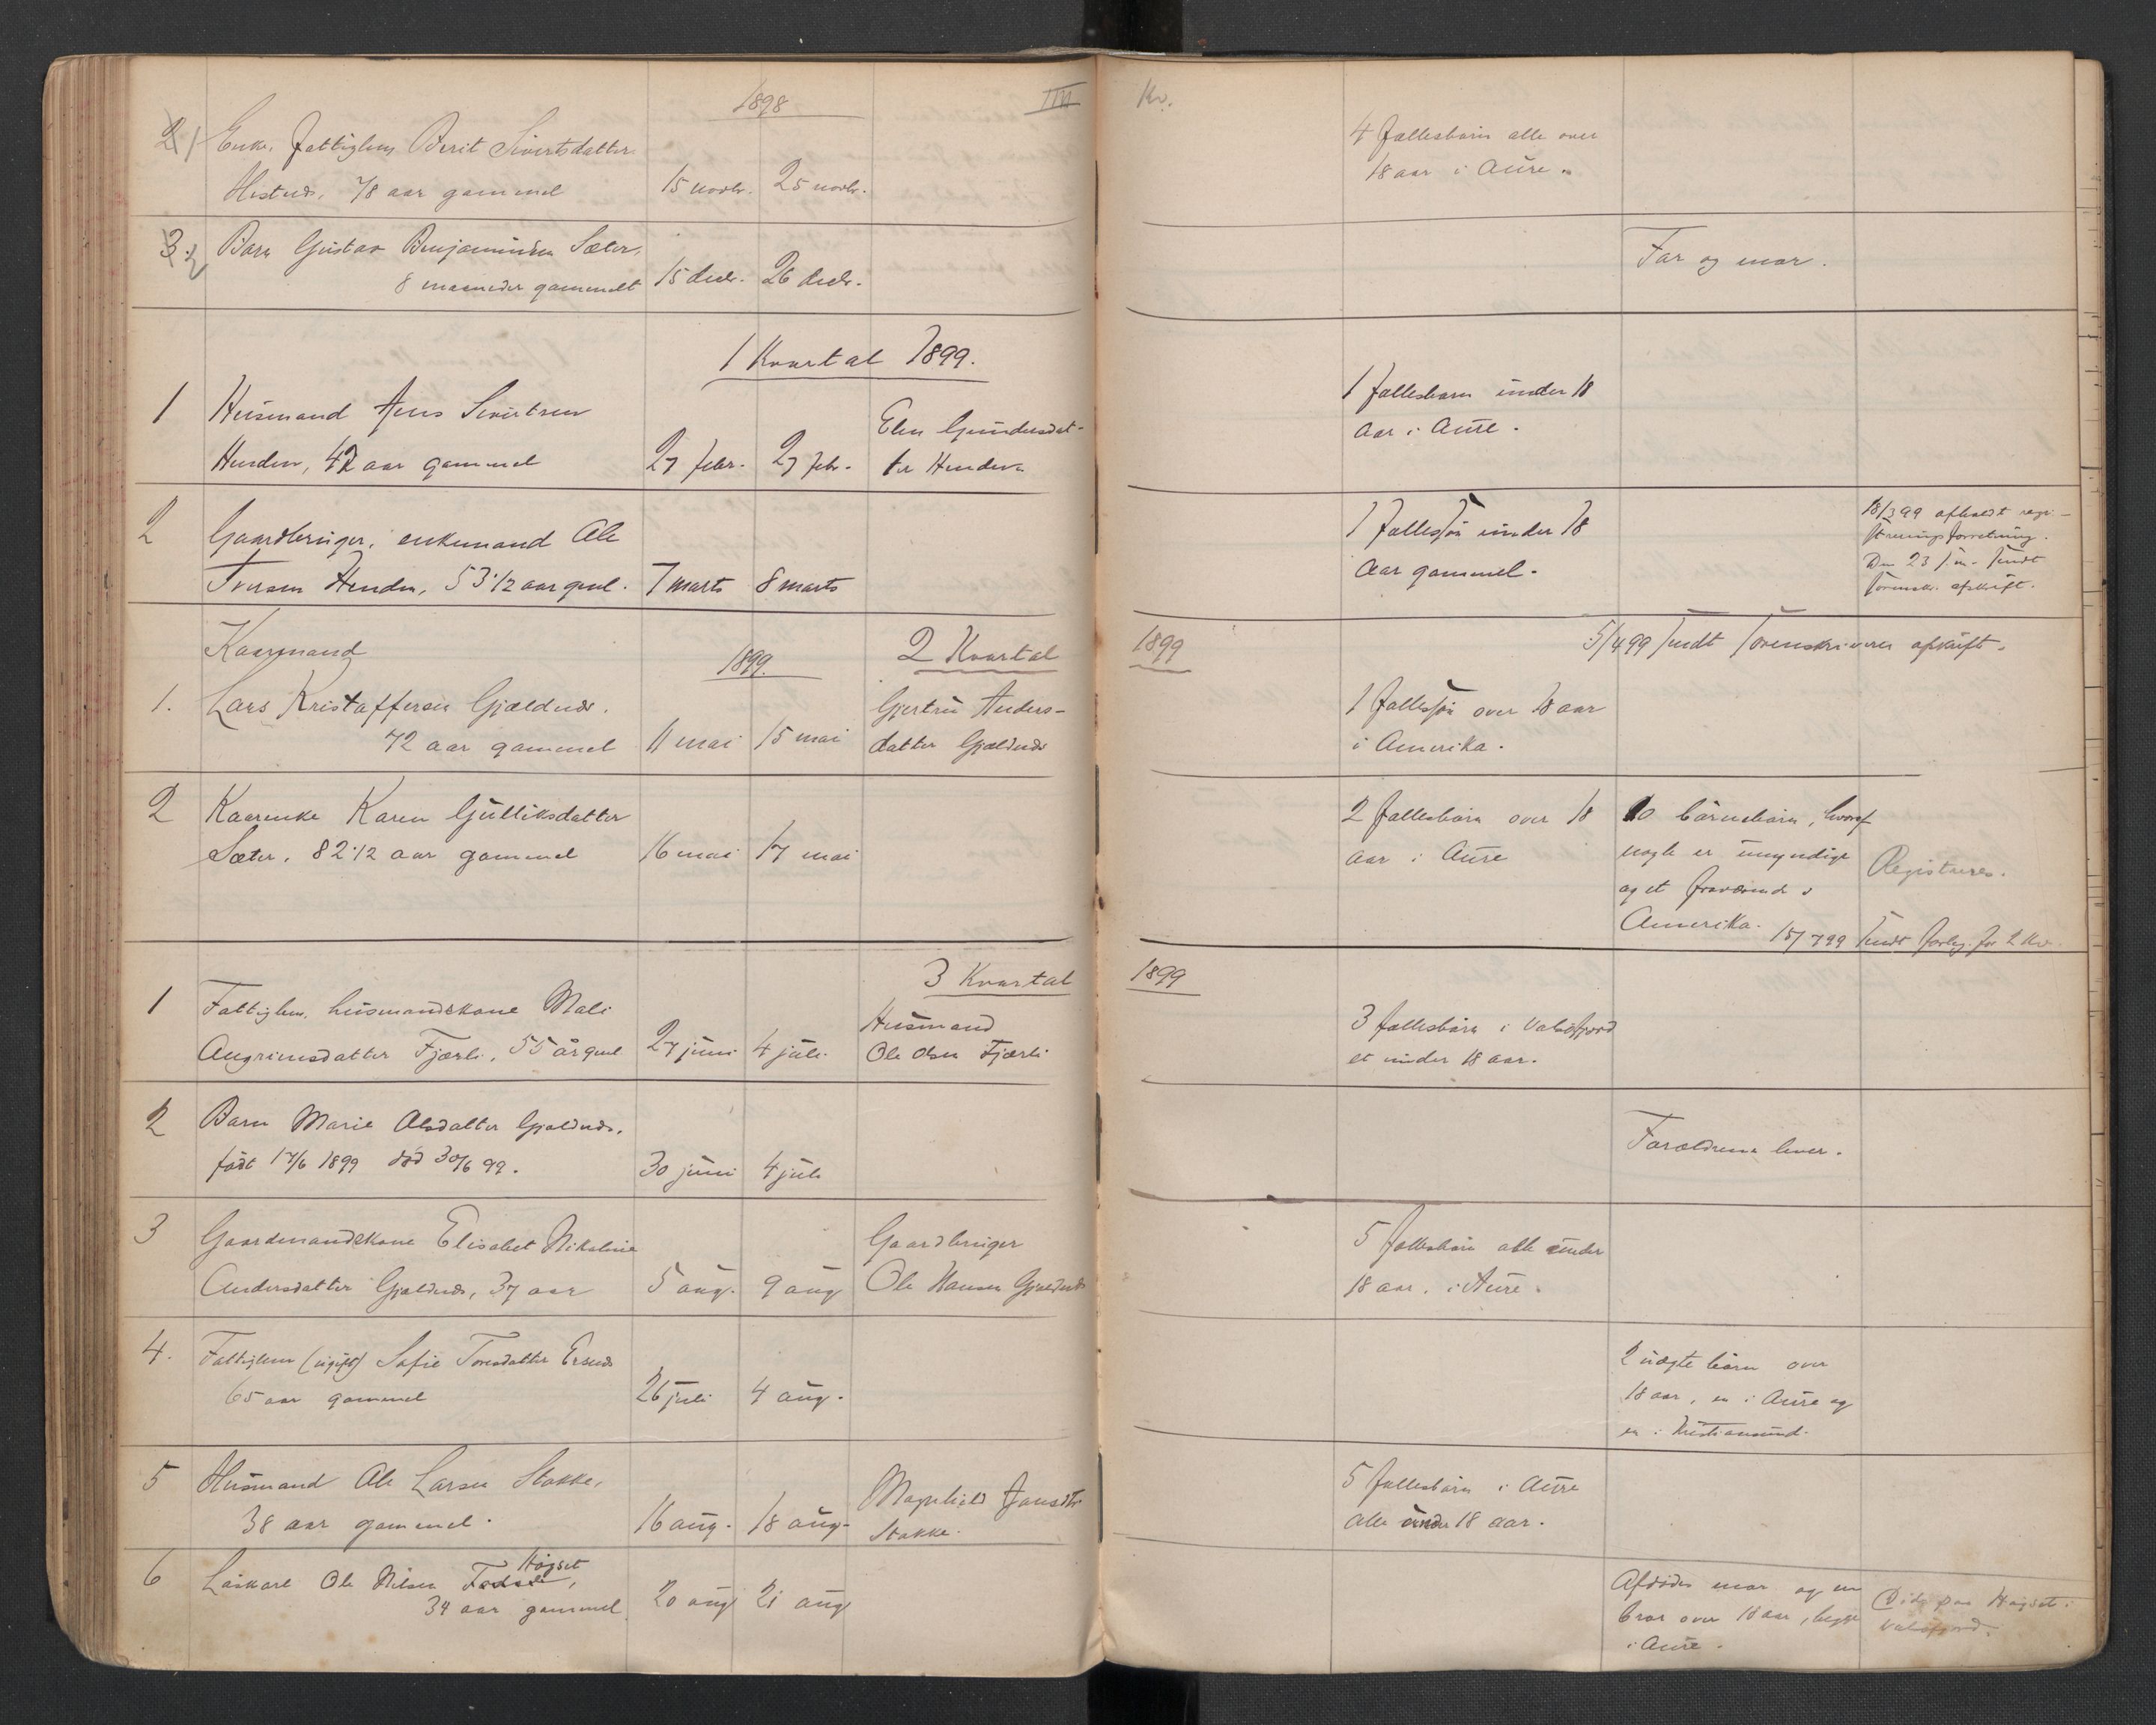 1898
IIII Kv.
2 1 Enke, fattiglem Berit Sivertsdatter
Hestnes, 78 aar gammel 15 novbr. 25 novbr.
4 fællesbørn alle over
18 aar i Aure.
3. 2 Barn Gustav Benjaminsen Sæter,
8 maaneder gammelt 15 decbr. 26 decbr.
Far og mor.
1 Kvartal 1899.
1 Husmand Jens Sivertsen
Henden, 42 aar gammel 27 febr. 27 febr.
Elen Gundersdat-
ter Henden
1 fællesbarn under 18
aar i Aure.
2 Gaardbruger, enkemand Ole
Iversen Henden, 53 1/2 aar gml. 7 marts 8 marts
1 fællessøn under 18
aar gammel.
18/3 99 afholdt regi-
streringsforretning.
Den 23 s.m. sendt
sorenskr. afskrift.
1899. 2 Kvartal
1899
5/4 99 sendt sorenskriveren afskrift.
Kaarmand
1. Lars Kristoffersen Gjældnes.
72 aar gammel 11 mai 15 mai
Gjertru Anders-
datter Gjældnes
1 fællessøn over 18 aar
i Amerika.
2 Kaarenke Karen Gulliksdatter
Sæter, 82 1/2 aar gammel 16 mai 17 mai
2 fællesbørn over 18
aar i Aure
10 børnebørn, hvoraf
nogle er umyndige
og et fraværende i
Amerika.
Registreres.
15/7 99 sendt forteg. for 2 Kv.
3 Kvartal
1899
1 Fattiglem, husmandskone Mali
Angrimsdatter Fjærli, 55 år gml 27 juni 4 juli
Husmand
Ole Olsen Fjærli
3 fællesbørn i Valsøfjord
et under 18 aar.
2 Barn Marie Olsdatter Gjældnes,
født 17/6 1899 død 30/6 99. 30 juni 4 juli
Forældrene lever.
3 Gaardmandskone Elisabet Nikoline
Andersdatter Gjældnes, 37 aar 5 aug. 9 aug
Gaardbruger
Ole Hansen Gjældnes
5 fællesbørn alle under
18 aar, i Aure.
4. Fattiglem (ugift) Sofie Toresdatter
65 aar gammel 26 juli 4 aug.
2 uægte børn over
18 aar, en i Aure og
en i Kristiansund.
5 Husmand Ole Larsen Stokke,
38 aar gammel. 16 aug. 18 aug.
Magnhild Jonsdtr
Stokke.
5 fællesbørn i Aure
alle under 18 aar.
6 Løskarl Ole Nilsen Høgset,
34 aar gammel 20 aug 21 aug
Afdødes mor og en
bror over 18 aar, begge
i Aure.
Døde paa Høgset i
Valsøfjord.